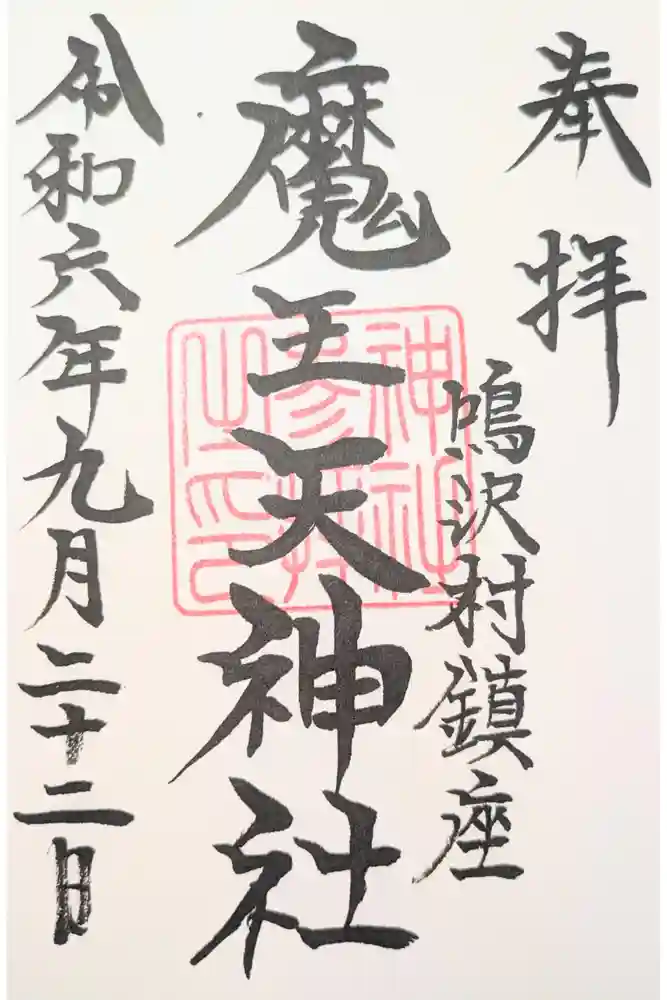 奉拝
鳴沢村鎮座
魔王天神社
神社
参拝
之印
令和六年九月二十二日